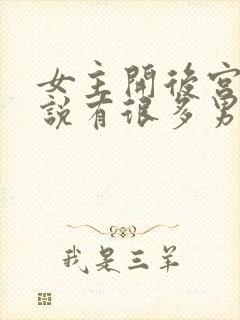 女主開後宮
說有很多男
我是三羊